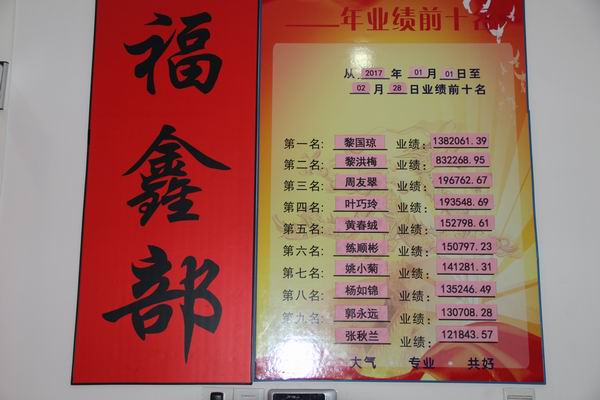 福鑫部
年业绩前十名
从 2017 年 01 月 01 日至
02 月 28 日业绩前十名
第一名: 黎国琼 业绩: 1382061.39
第二名: 黎洪梅 业绩: 832268.95
第三名: 周友翠 业绩: 196762.67
第四名: 叶巧玲 业绩: 193548.69
第五名: 黄春绒 业绩: 152798.61
第六名: 练顺彬 业绩: 150797.23
第七名: 姚小菊 业绩: 141281.31
第八名: 杨如锦 业绩: 135246.49
第九名: 郭永远 业绩: 130708.28
张秋兰 业绩: 121843.57
大气 专业 共好